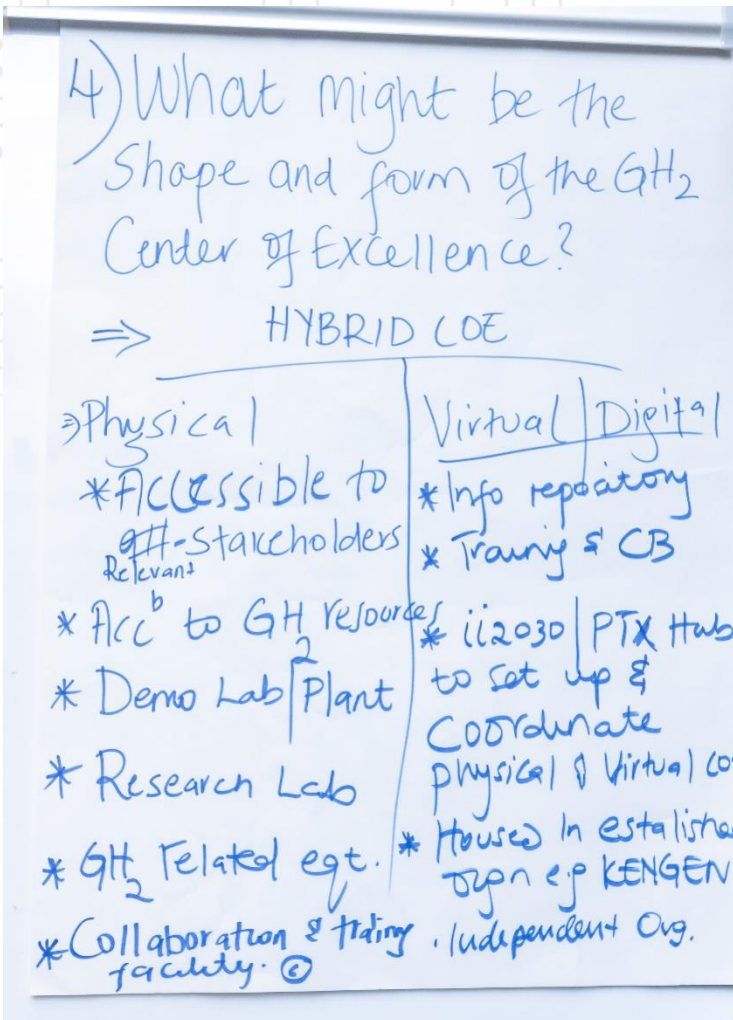 4) What might be the
Shape and form of the GH2
Center of Excellence?
⇒ HYBRID COE
⇒Physical
*Accessible to
-Stakeholders
Relevant
* Accb to GH2 resources
* Demo Lab|Plant
* Research Lab
* GH2 related eqt.
*Collaboration & traing
facility. ©
Virtual|Digital
* Info repository
* Traing & CB
* ii2030|PTX Hub
to set up &
Coordinate
physical & Virtual co
* Housed in establishe
orgn eg KENGEN
. Independent Org.